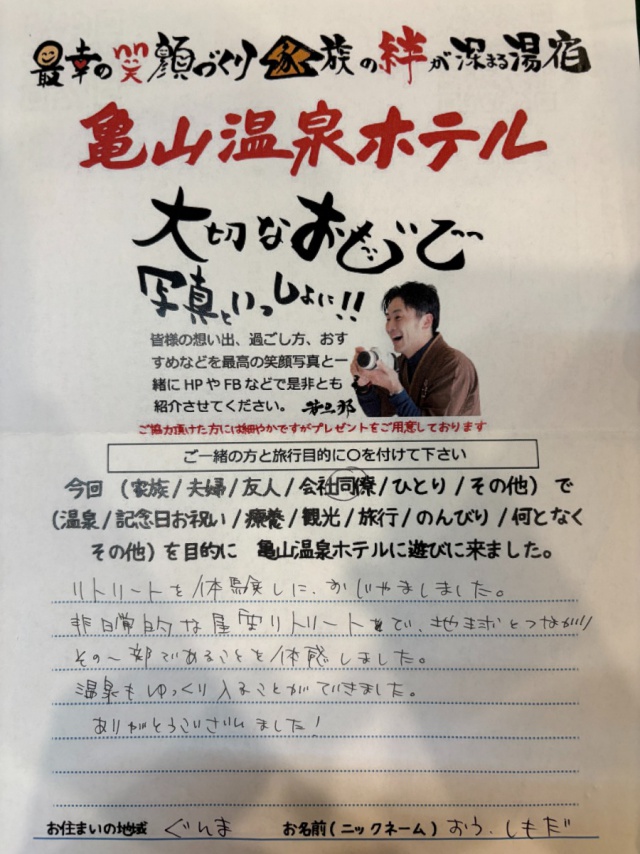 最幸の笑顔づくり 家族の絆が深まる湯宿
亀山温泉ホテル
大切なおもいで
写真といっしょに!!
皆様の想い出、過ごし方、おす
すめなどを最高の笑顔写真と一
緒にHPやFBなどで是非とも
紹介させてください。
ご協力頂けた方には細やかですがプレゼントをご用意しております
ご一緒の方と旅行目的に○を付けて下さい
今回(家族/夫婦/友人/会社同僚/ひとり/その他)で
(温泉/記念日お祝い/療養/観光/旅行/のんびり/何となく
その他)を目的に 亀山温泉ホテルに遊びに来ました。
リトリートを体験しに、おじゃましました。
非日常的な星空リトリートで、地球とつながり
その一部であることを体感しました。
温泉もゆっくり入ることができました。
ありがとうございました!
お住まいの地域 ぐんま お名前(ニックネーム) おう、しもだ